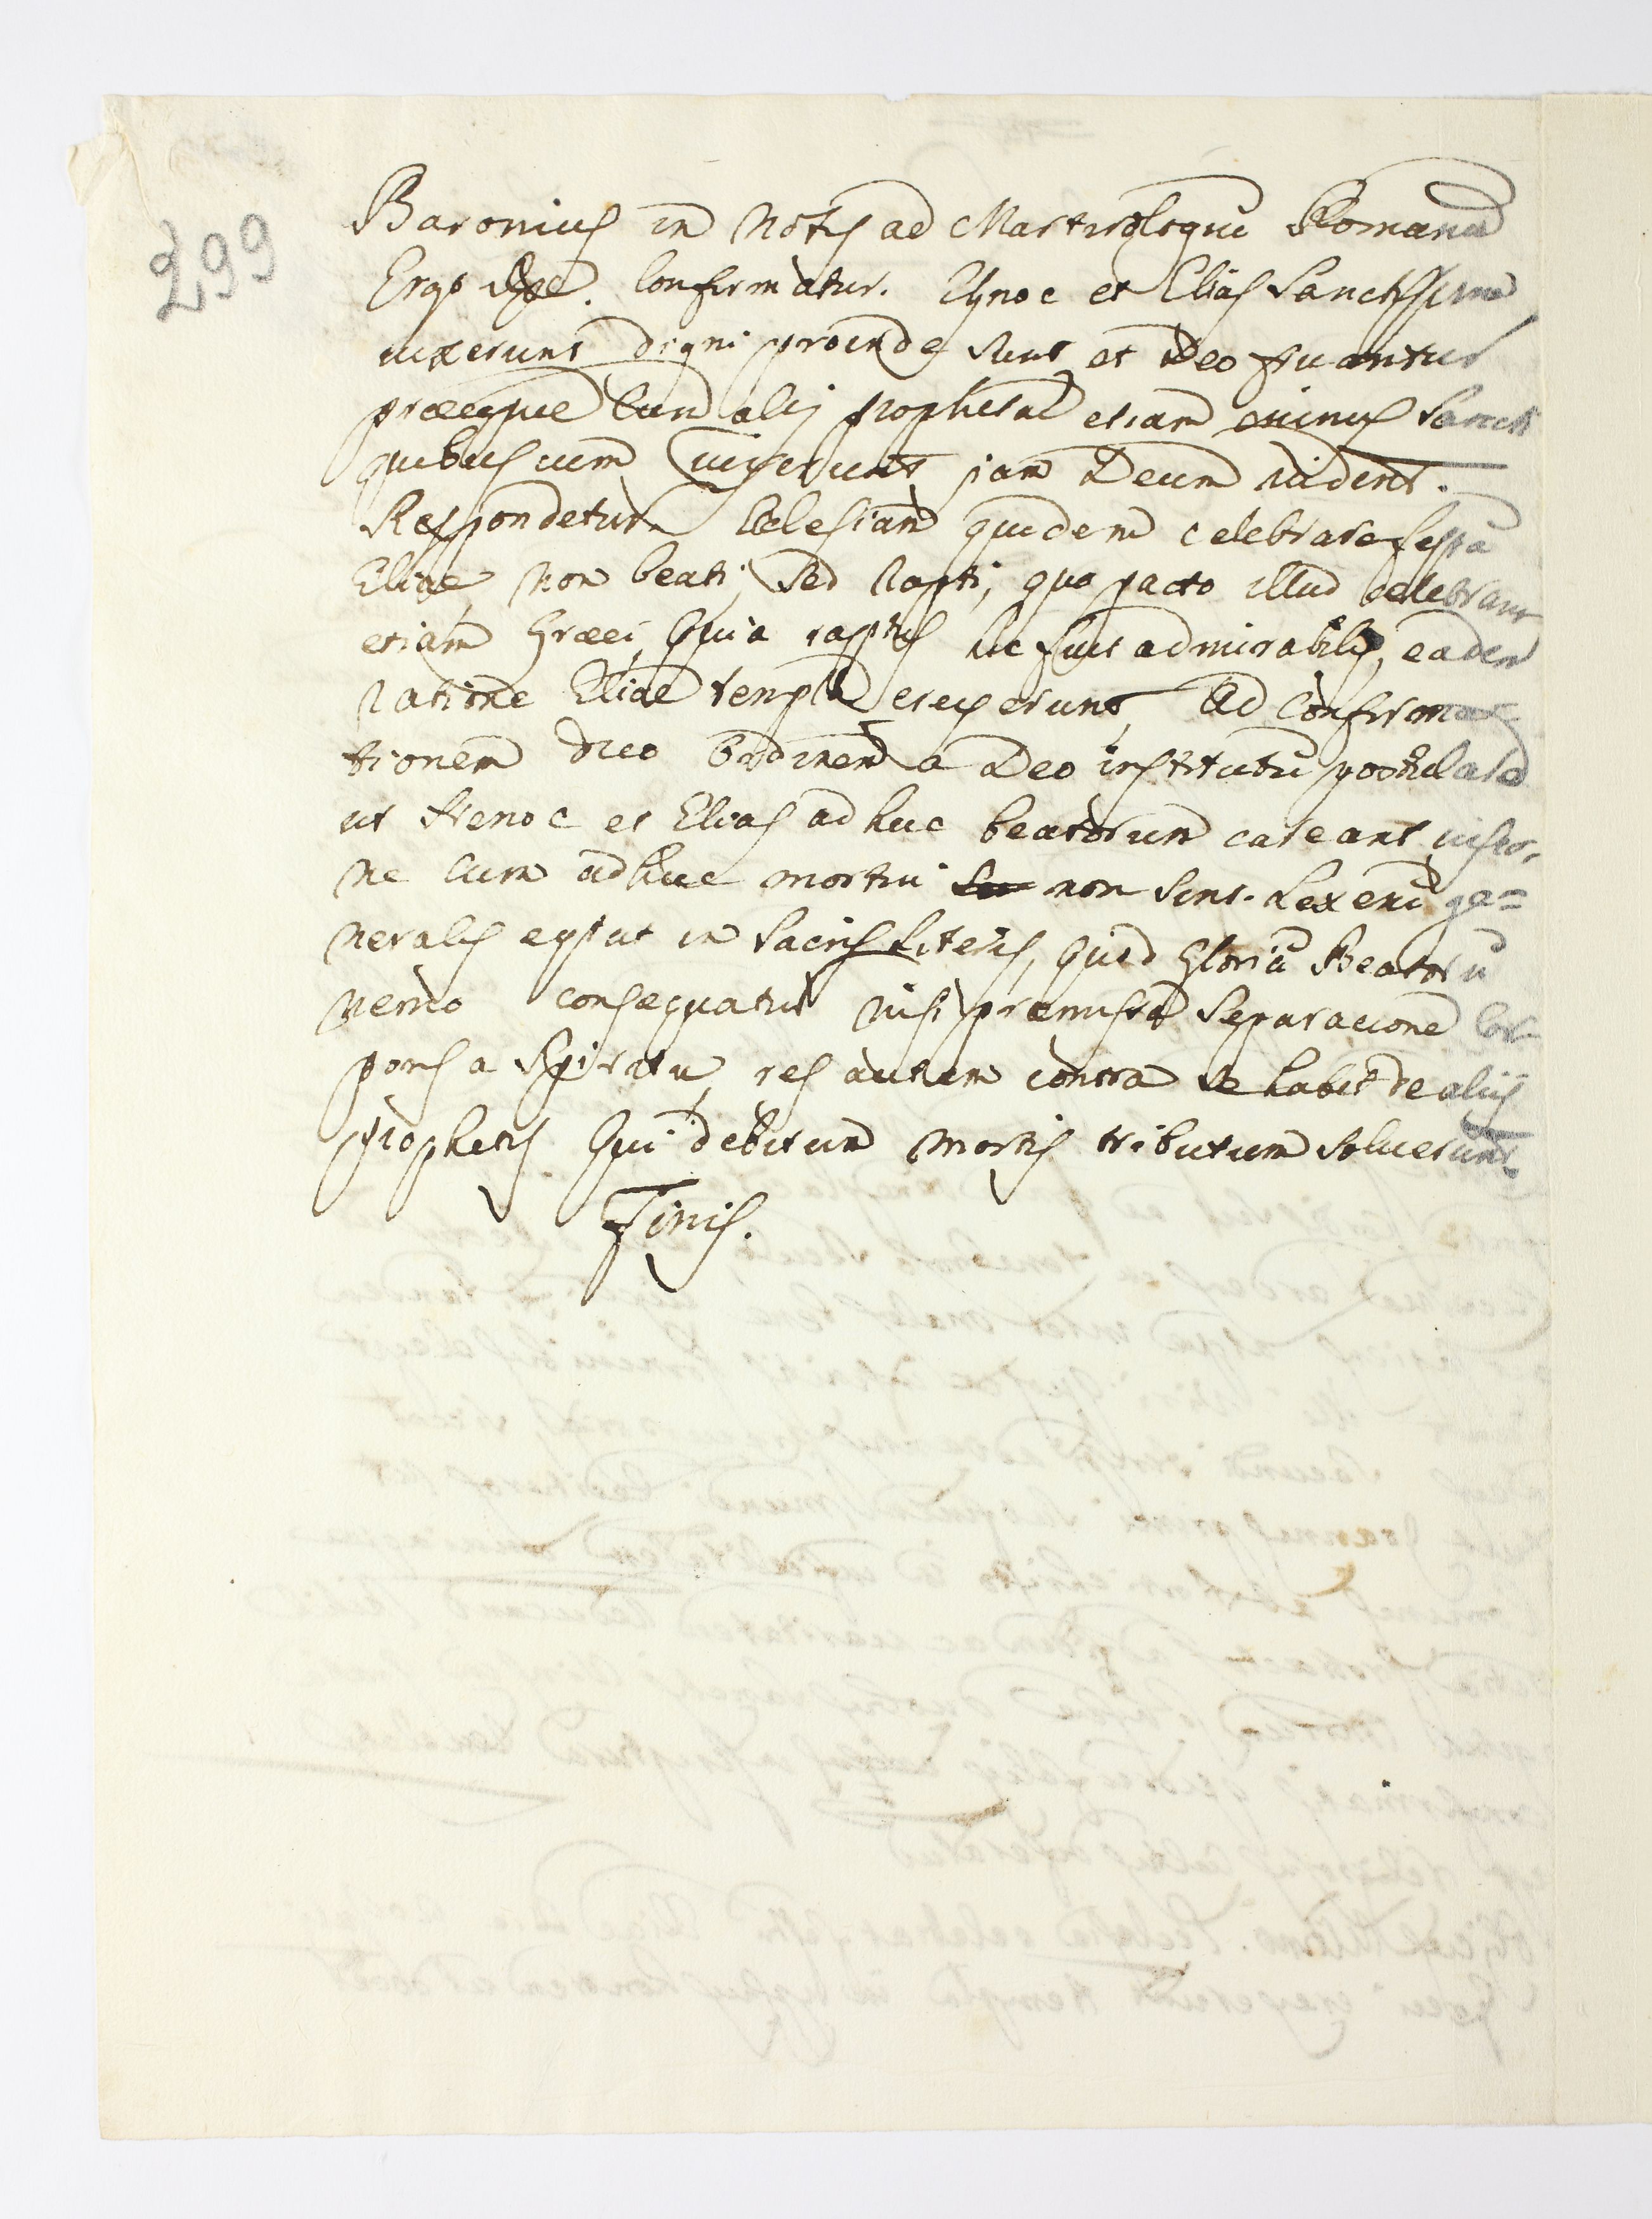 299
Baronius in Notis ad Martirologiū Romanū
Ergo &c. Confirmatur. Ejnoc et Elias Sanctissime
uixerunt digni proinde sunt et Deo fruantur
præcque cum alij prophetae etiam minus Sancti
quibuscum uixerunt jam Deum uident.
Respondetur Ecclesiam quidem celebrare festū
Eliae non beati, Sed rapti, quo pacto illud celebrant
etiam Græci, Quia raptus hic fuit admirabilis, eadem
ratione Eliae templa erexerunt, Ad Confirma-
tionem dico Ordinem a Deo institutū postulare
ut Henoc et Elias adhuc beatorum careant uisio-
ne cum adhuc mortui non sint. Lex enī ge=
neralis extat in Sacris Literis, Quod Gloriā Beatorū
nemo consequatur nisi præmissa Separacione Cor-
poris a Spiritu, res autem contra se habet de aliis
Prophetis Qui debitum mortis tributum soluerunt.
Finis.